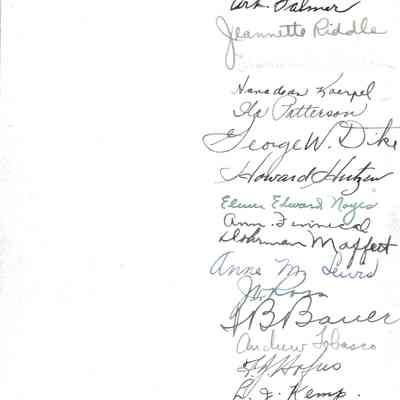 Palmer
Jeannette Riddle
Hanadean Koerpel
Ila Patterson
George W. Dike
Howard Hutzen
Elmer Edward Noyes
Ann
Dohrman Moffett
Anne M. Lewis
B Bauer
Andrew Tobasco
Hofus
Kemp.